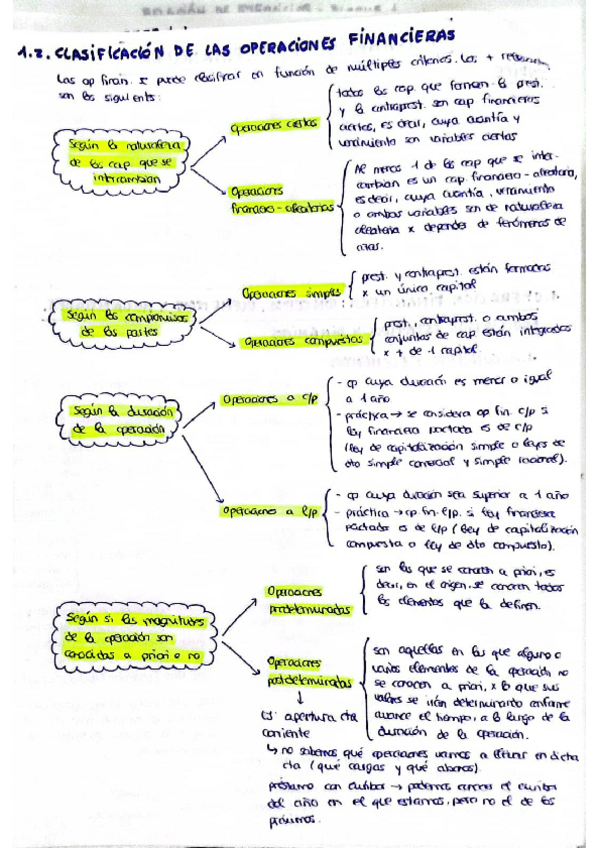 1.2. CLASIFICACIÓN DE LAS OPERACIONES FINANCIERAS
Las op finan. se puede clasificar en función de múltiples criterios. Los +
son los siguients:
Según la naturaleza
de los cap. que se
intercambian
Operaciones ciertas
todos los cap. que forman la prest.
y la contraprest. son cap financieros
ciertos, es decir, cuya cuantía y
vencimiento son variables ciertas
Operaciones
financiero-aleatorias
Al menos 1 de los cap que se inter-
cambian es un cap. financiero-aleatorio,
es decir, cuya cuantía, vencimiento
o ambas variables son de naturaleza
aleatoria x depender de fenómenos de
azar.
Según los compromisos
de las partes
Operaciones simples
prest. y contraprest. están formadas
x un único capital
Operaciones compuestas
prest., contraprest. o ambos
conjuntos de cap están integrados
x + de 1 capital
Según la duración
de la operación
Operaciones a c/p
- op cuya duración es menor o igual
a 1 año
- práctica → se considera op fin. c/p si
ley financiera pactada es de c/p
(ley de capitalización simple o leyes de
dto simple comercial y simple racional).
Operaciones a l/p
- op cuya duración sea superior a 1 año
- práctica → op fin. l/p. si ley financiera
pactada es de l/p (ley de capitalización
compuesta o ley de dto compuesto).
Según si las magnitudes
de la operación son
conocidas a priori o no
Operaciones
predeterminadas
son las que se conocen a priori, es
decir, en el origen, se conocen todos
los elementos que la definen.
Operaciones
postdeterminadas
son aquellas en las que alguno o
varios elementos de la operación no
se conocen a priori, x lo que sus
valores se irán determinando conforme
avance el tiempo, a lo largo de la
duración de la operación.
EJ: apertura cta
corriente
↳ no sabemos qué operaciones vamos a efectuar en dicha
cta (qué cargos y qué abonos).
préstamo con euribor → podemos conocer el euribor
del año en el que estamos, pero no el de los
próximos.